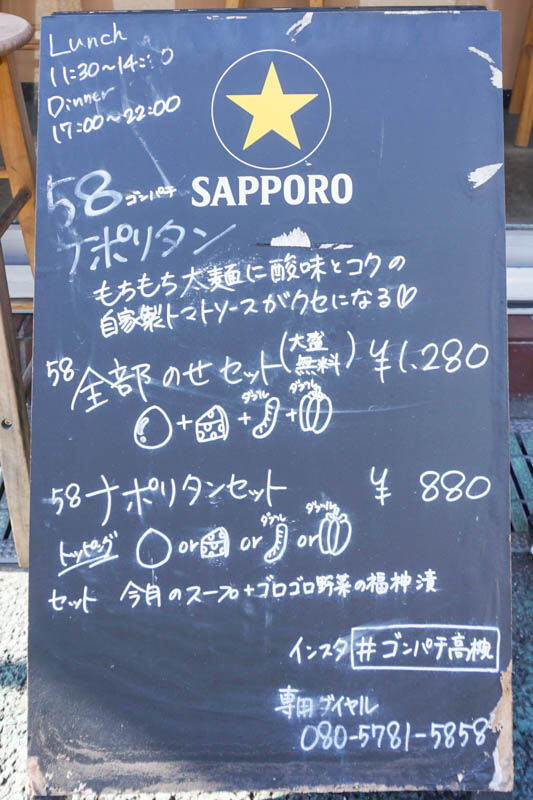 Lunch
11:30〜14:30
Dinner
17:00〜22:00
SAPPORO
58ゴンパチ
ナポリタン
もちもち太麺に酸味とコクの
自家製トマトソースがクセになる♡
58全部のせセット(大盛無料) ¥1.280
ダブル ダブル
+ + +
58ナポリタンセット ¥ 880
ダブル ダブル
トッピング or or or
セット 今月のスープ+ゴロゴロ野菜の福神漬
インスタ #ゴンパチ高槻
専用ダイヤル
080-5781-5858